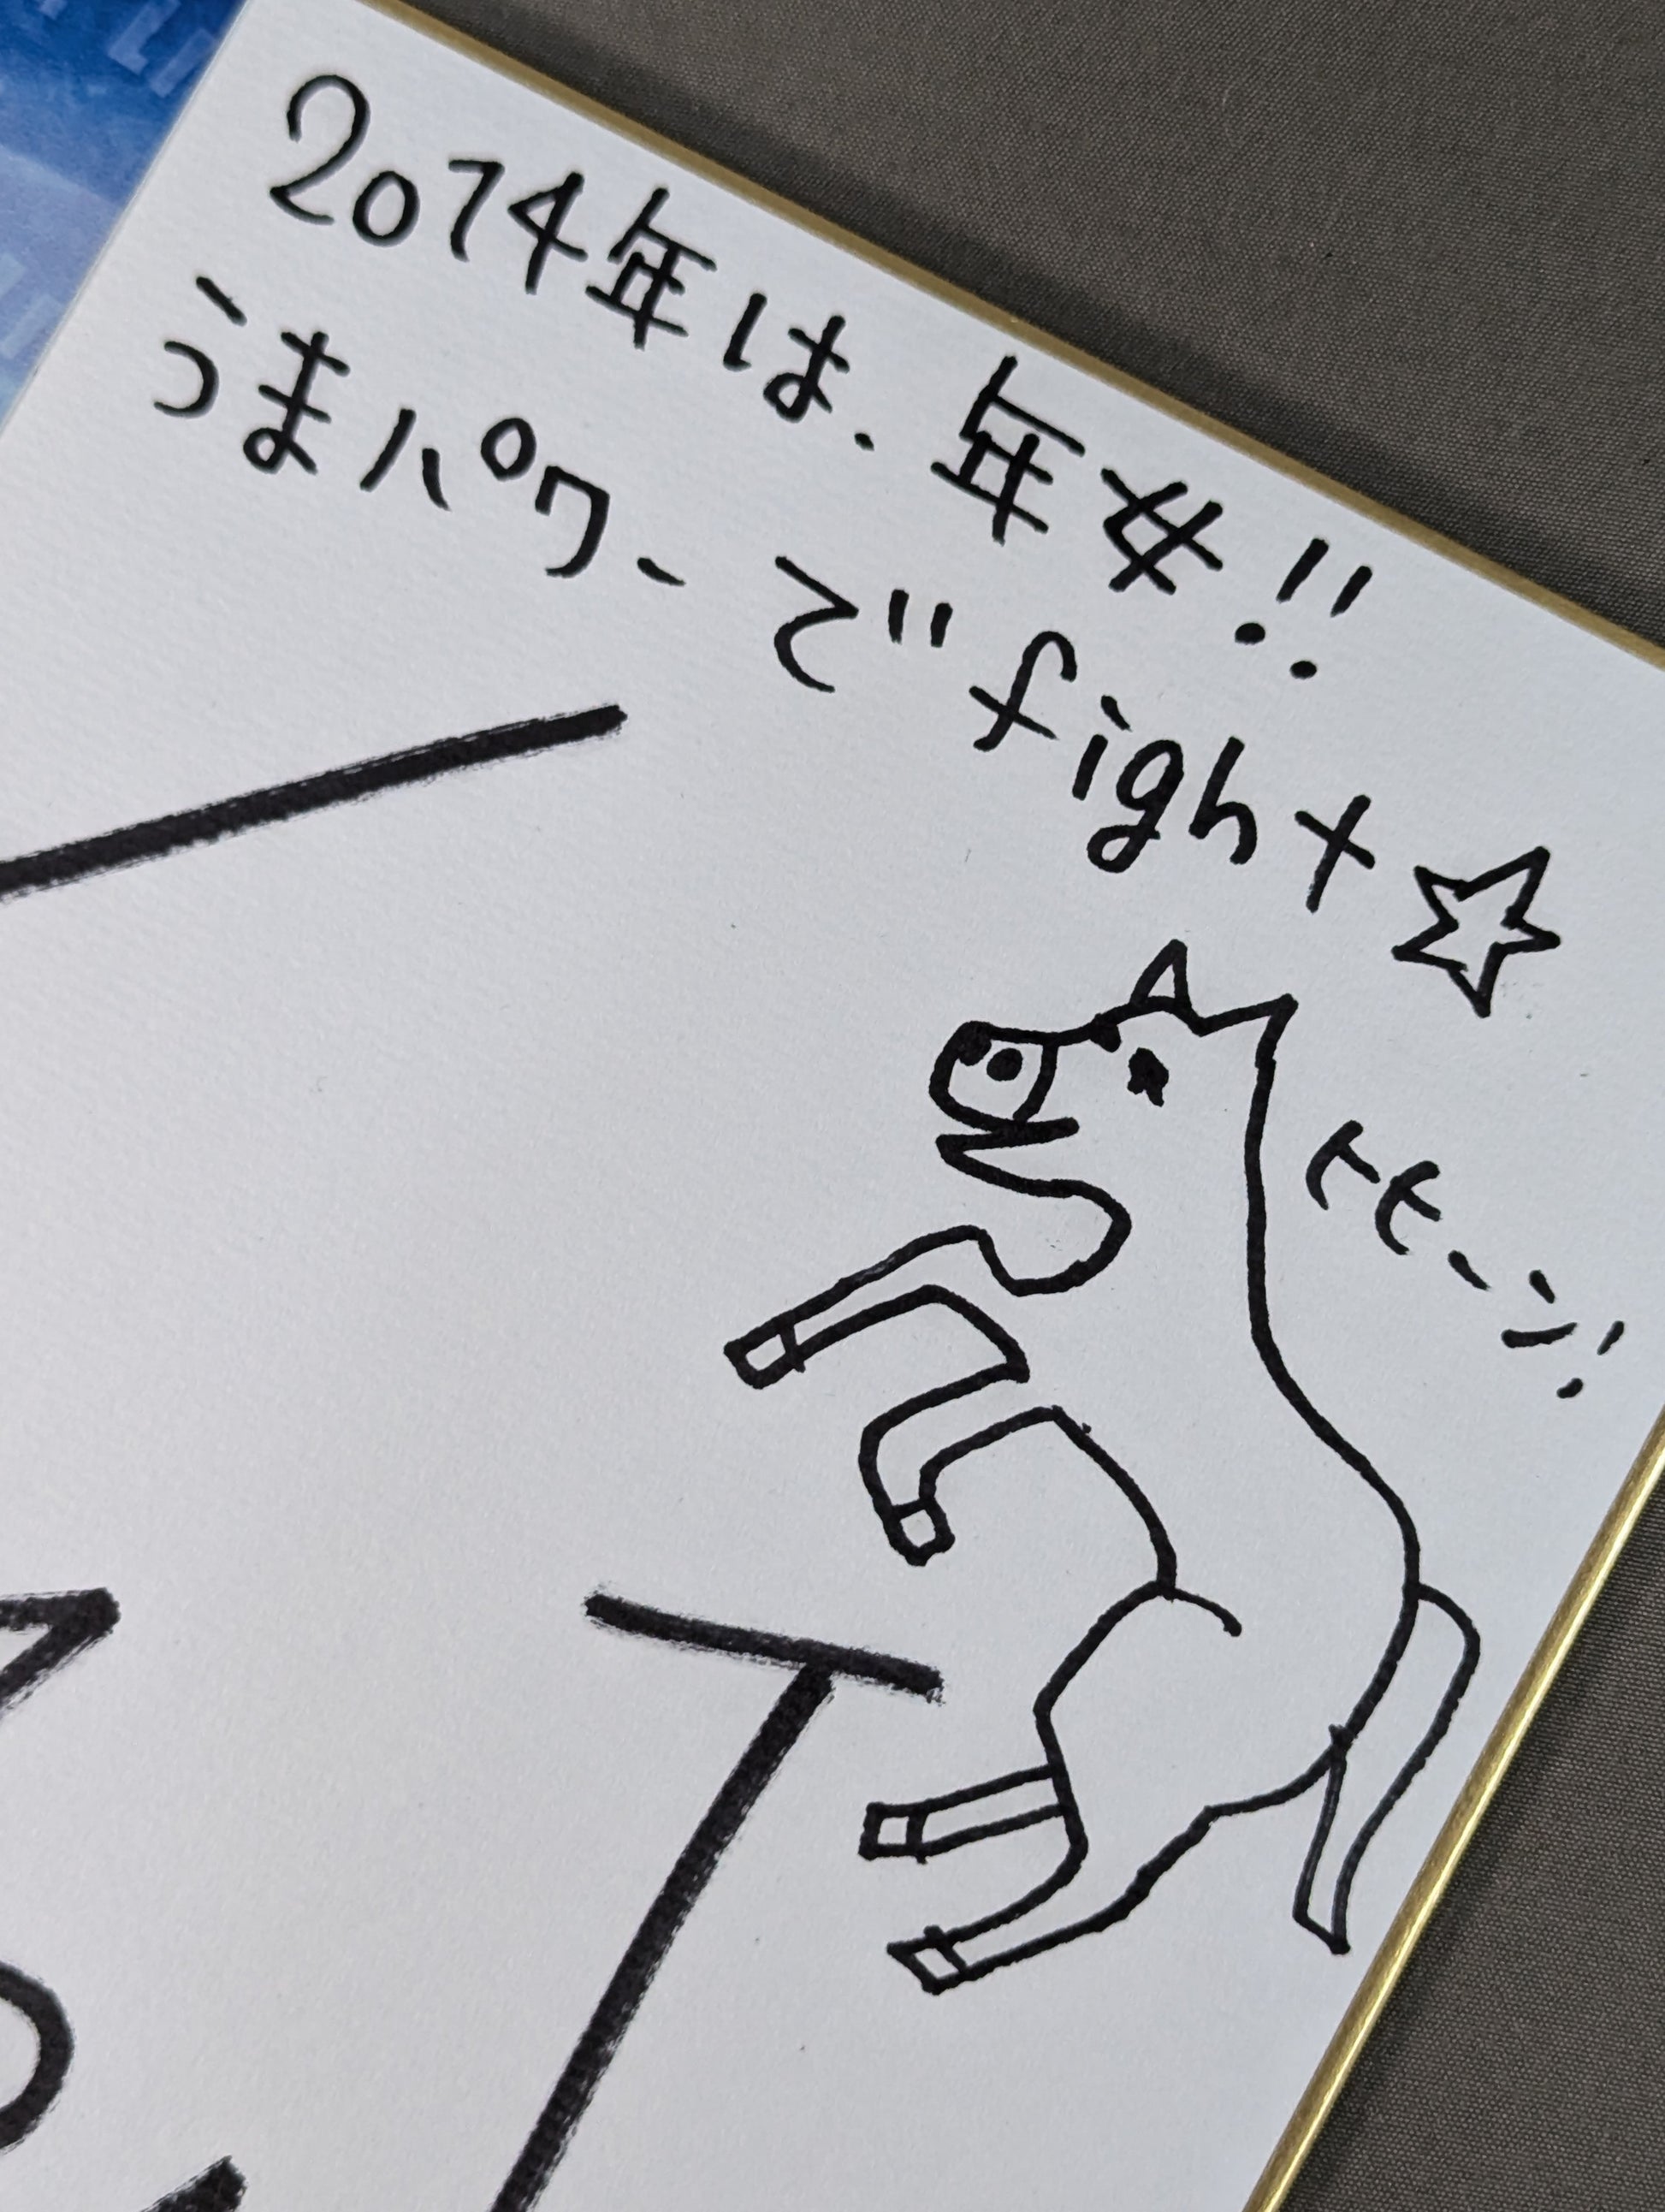 2014年は、年女!!
うまパワーでfight☆
ヒヒーン!